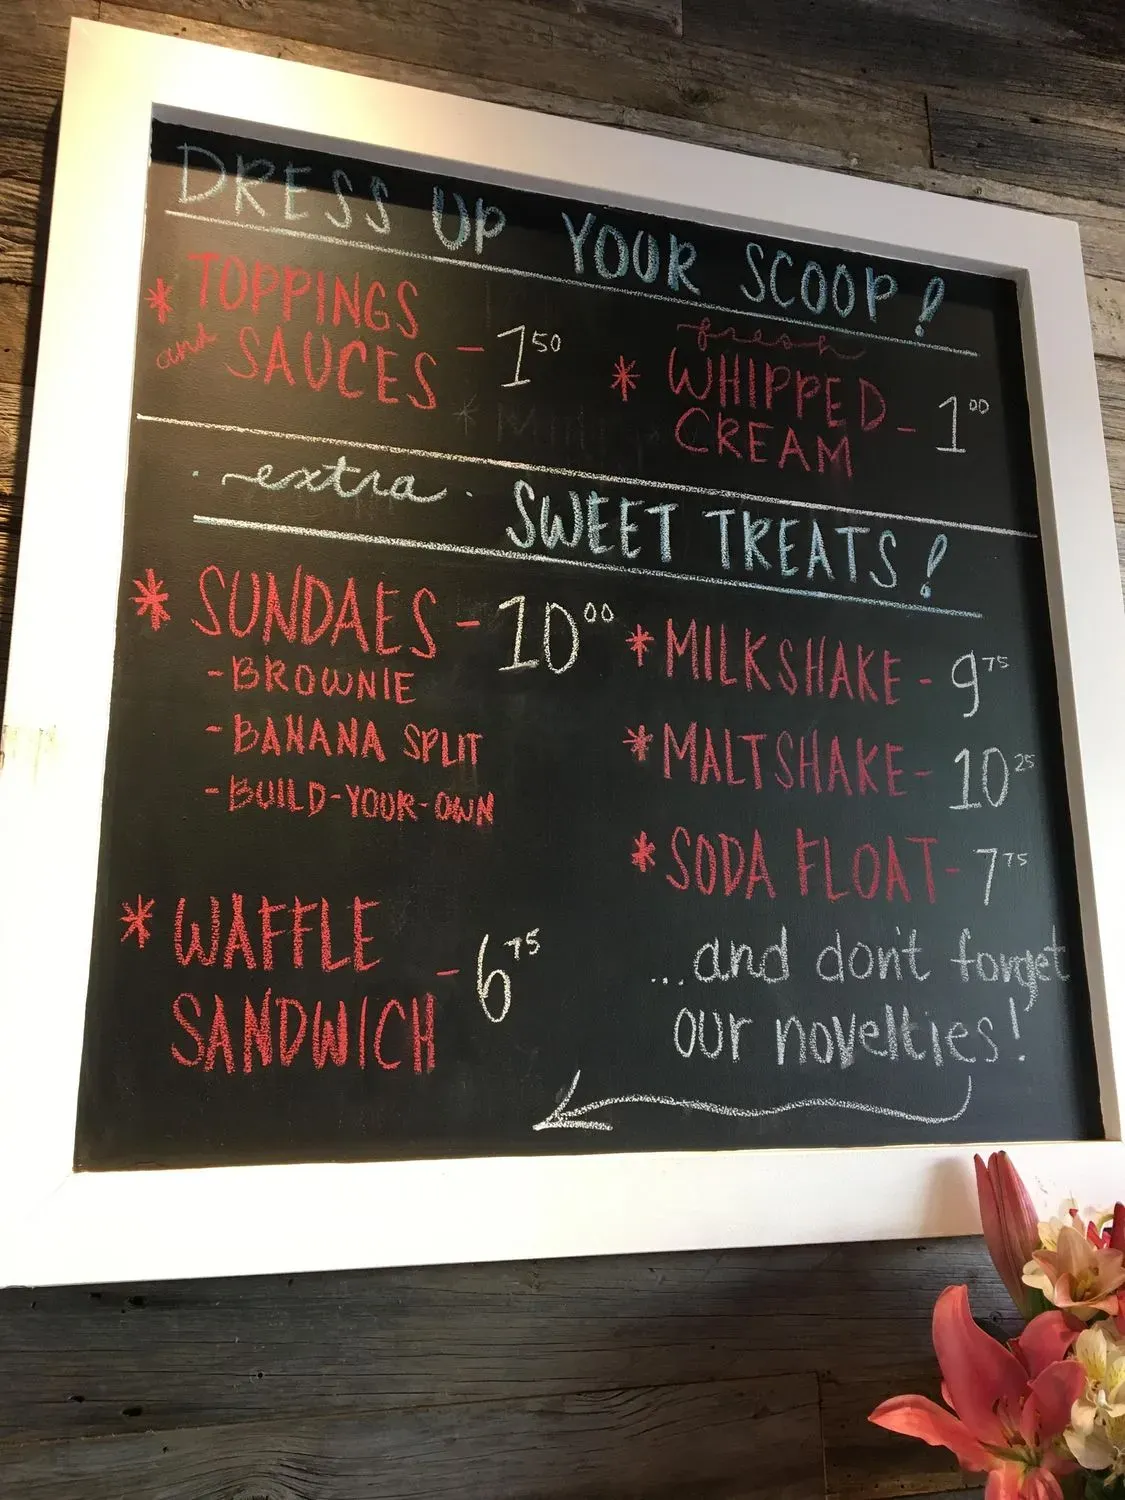 DRESS UP YOUR SCOOP!
* TOPPINGS
and SAUCES - 1 50
fresh
* WHIPPED
CREAM - 1 00
extra SWEET TREATS!
* SUNDAES - 10 00
- BROWNIE
- BANANA SPLIT
- BUILD-YOUR-OWN
* WAFFLE
SANDWICH - 6 75
* MILKSHAKE - 9 75
* MALTSHAKE - 10 25
* SODA FLOAT - 7 75
...and don't forget
our novelties!